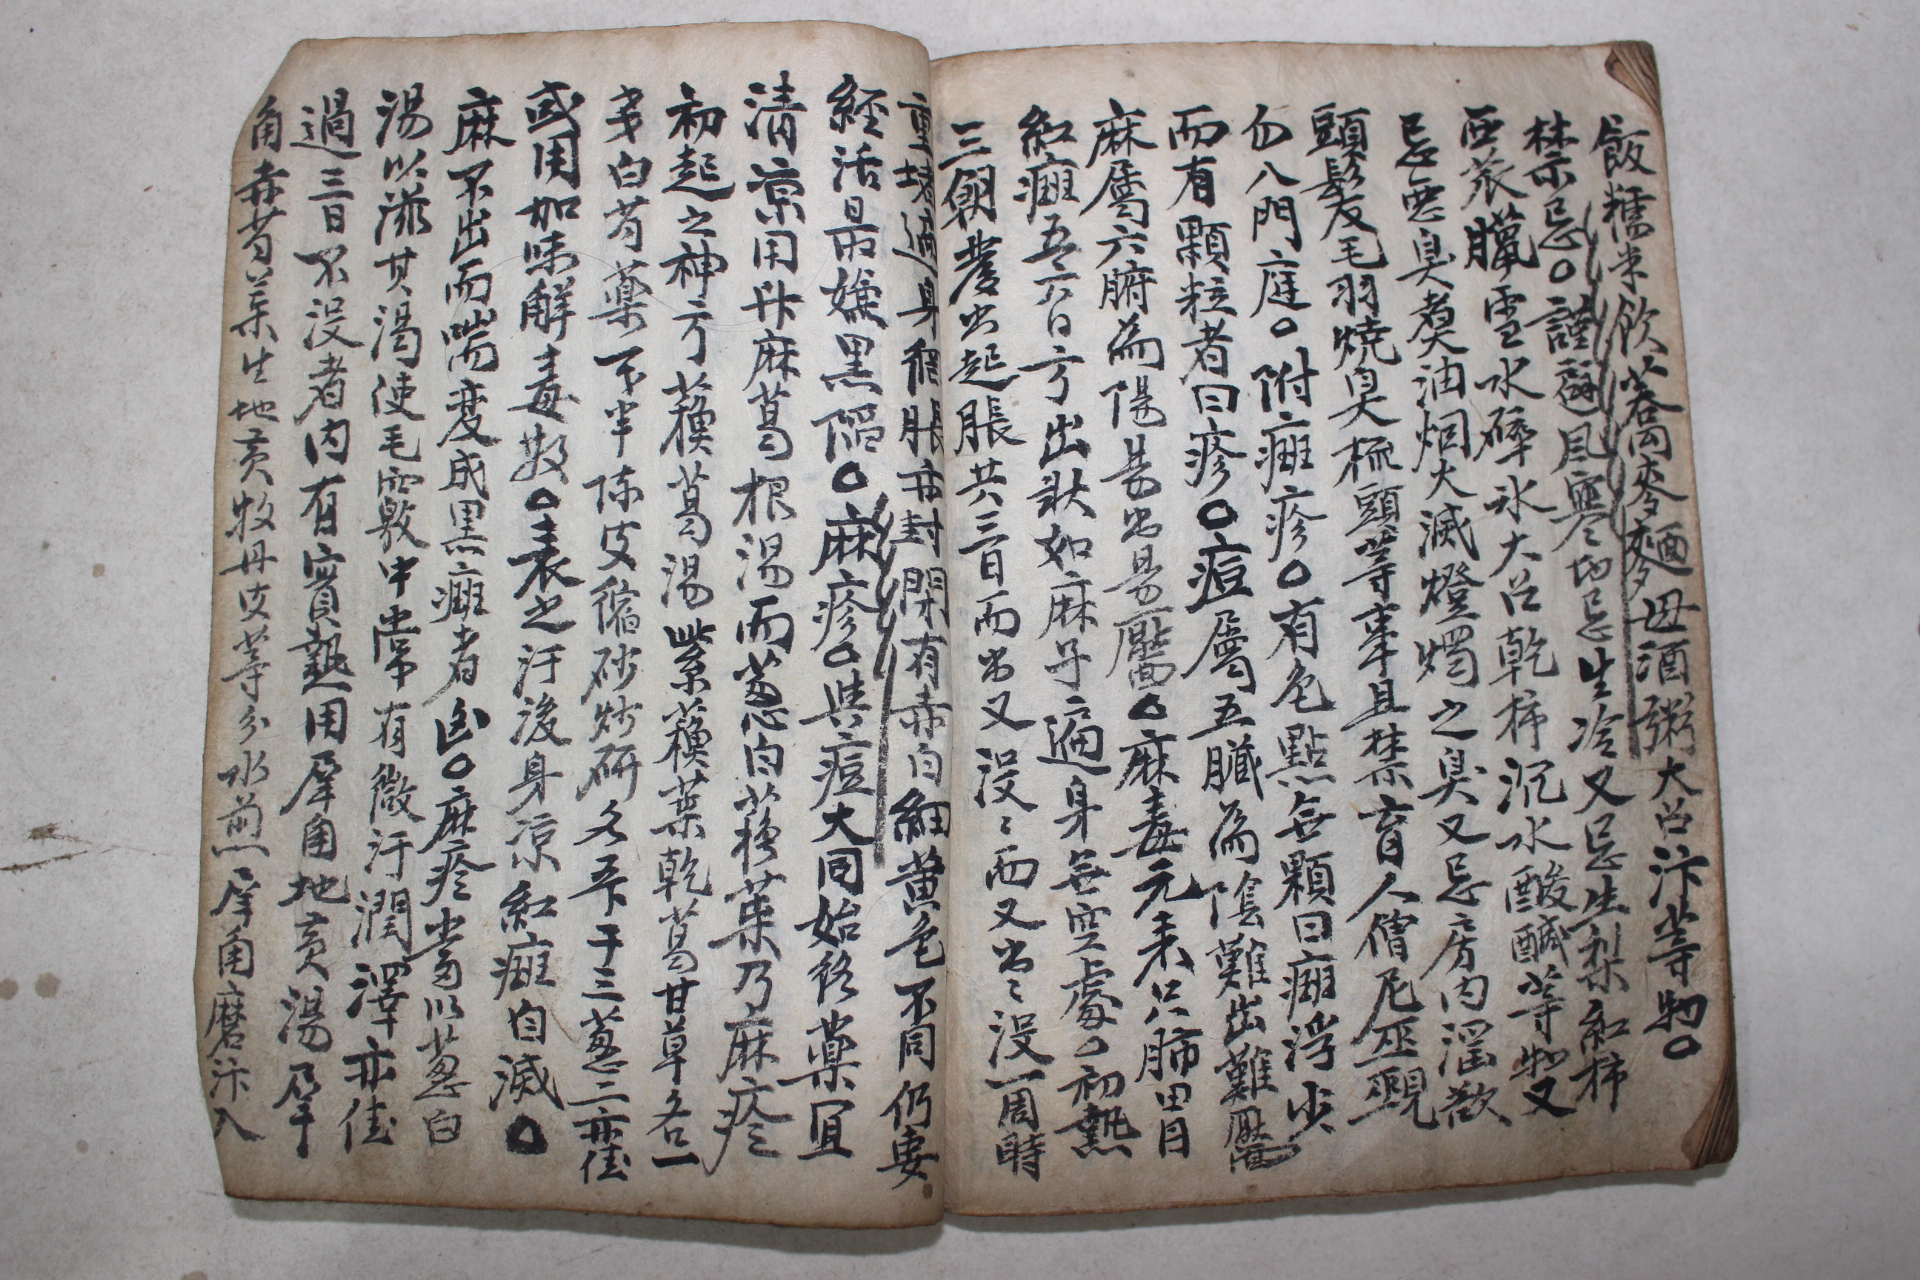 飯糯米飮蕎麥麵母酒粥大呂汴等物○
禁忌○謹避風寒切忌生冷又忌生梨紅柿
西苽臘雪水碎氷大呂乾柿沉水酸醎等物又
忌惡臭煑油烟火滅燈燭之臭又忌房内淫欲
頭髮毛羽燒臭梳頭等事且禁盲人僧尼巫覡
勿八門庭○附癍疹○有色點無顆曰癍浮尖
而有顆粒者曰疹○痘屬五臟爲陰難出難靨
麻屬六腑爲陽易出易靨○麻毒元來只肺胃
紅癍五六日方出狀如麻子遍身無空處○初熱
三朝發出起脹共三日而出又沒〻而又出〻沒一周時
重堵遍身綳脹亦封閉有赤白細黃色不同仍要
經活最嫌黑陷○麻疹○與痘大同始終藥宜
清凉用升麻葛根湯而葱白蘓葉乃麻疹
初起之神方蘓葛湯紫蘓葉乾葛甘草各一
戔白芍藥一戔半陳皮縮砂炒研各五卜干三葱二亦佳
或用加味解毒散○表之汗後身凉紅癍自滅○
麻不出而喘變成黑癍者凶○麻疹當以葱白
湯以滋其渴使毛竅中常有微汗潤澤亦佳
過三日不沒者内有實熱用犀角地黃湯犀
角赤芍藥生地黃牧丹皮等分水煎犀角磨汴入